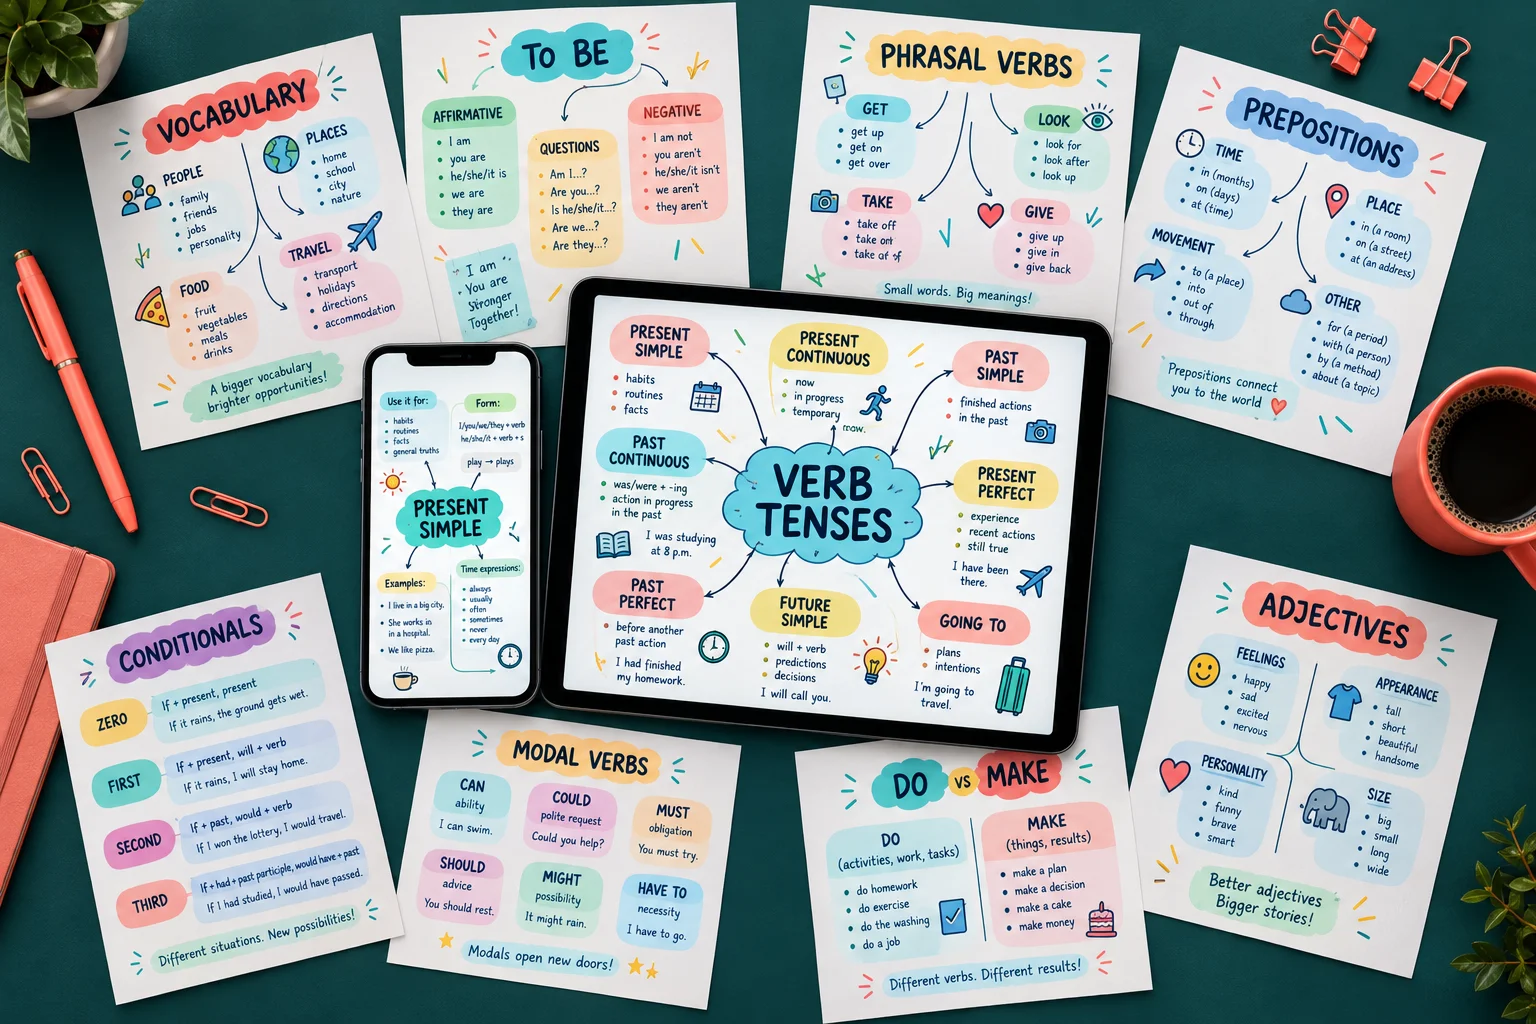 VOCABULARY
PEOPLE
family
friends
jobs
personality
PLACES
home
school
city
nature
FOOD
fruit
vegetables
meals
drinks
TRAVEL
transport
holidays
directions
accommodation
A bigger vocabulary
brighter opportunities!
TO BE
AFFIRMATIVE
I am
you are
he/she/it is
we are
they are
QUESTIONS
Am I...?
Are you...?
Is he/she/it...?
Are we...?
Are they...?
NEGATIVE
I am not
you aren't
he/she/it isn't
we aren't
they aren't
I am
You are
Stronger
Together!
PHRASAL VERBS
GET
get up
get on
get over
LOOK
look for
look after
look up
TAKE
take off
take
take
GIVE
give up
give in
give back
Small words. Big meanings!
PREPOSITIONS
TIME
in (months)
on (days)
at (time)
PLACE
in (a room)
on (a street)
at (an address)
MOVEMENT
to (a place)
into
out of
through
OTHER
for (a period)
with (a person)
by (a method)
about (a topic)
Prepositions connect
you to the world
Use it for:
habits
routines
facts
general truths
Form:
I/you/we/they + verb
he/she/it + verb + s
play → plays
PRESENT
SIMPLE
Examples:
I live in a big city.
She works in
in a hospital.
We like pizza.
Time expressions:
always
usually
often
sometimes
never
every day
VERB
TENSES
PRESENT
SIMPLE
habits
routines
facts
PRESENT
CONTINUOUS
now
in progress
temporary
now.
PAST
SIMPLE
finished actions
in the past
PAST
CONTINUOUS
was/were + -ing
action in progress
in the past
I was studying
at 8 p.m.
PRESENT
PERFECT
experience
recent actions
still true
I have been
there.
PAST
PERFECT
before another
past action
I had finished
my homework.
FUTURE
SIMPLE
will + verb
predictions
decisions
I will call you.
GOING TO
plans
intentions
I'm going to
travel.
CONDITIONALS
ZERO
If + present, present
If it rains, the ground gets wet.
FIRST
If + present, will + verb
If it rains, I will stay home.
SECOND
If + past, would + verb
If I won the lottery, I would travel.
THIRD
If + had + past participle, would have + past
If I had studied, I would have passed.
Different situations. New possibilities!
MODAL VERBS
CAN
ability
I can swim.
COULD
polite request
Could you help?
MUST
obligation
You must try.
SHOULD
advice
You should rest.
MIGHT
possibility
It might rain.
HAVE TO
necessity
I have to go.
Modals open new doors!
DO VS MAKE
DO
(activities, work, tasks)
do homework
do exercise
do the washing
do a job
MAKE
(things, results)
make a plan
make a decision
make a cake
make money
Different verbs. Different results!
ADJECTIVES
FEELINGS
happy
sad
excited
nervous
APPEARANCE
tall
short
beautiful
handsome
PERSONALITY
kind
funny
brave
smart
SIZE
big
small
long
wide
Better adjectives
Bigger stories!